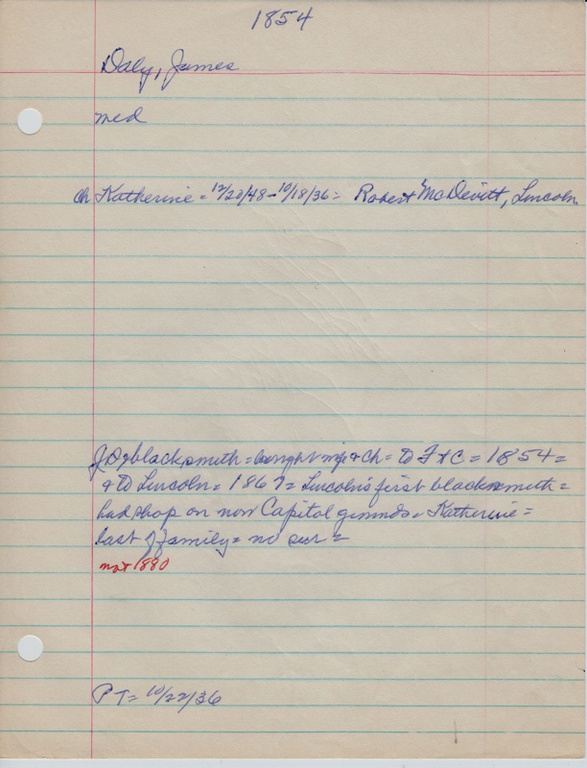 1854
Daly, James
med
ch Katherine = 12/20/48 - 10/18/36 = Robert McDevitt, Lincoln
J D = blacksmith = brought mp & ch = to F & C = 1854 =
& to Lincoln = 1867 = Lincoln's first blacksmith =
had shop on now Capitol grounds = Katherine =
last of family = no sur =
not 1880
P T = 10/22/36